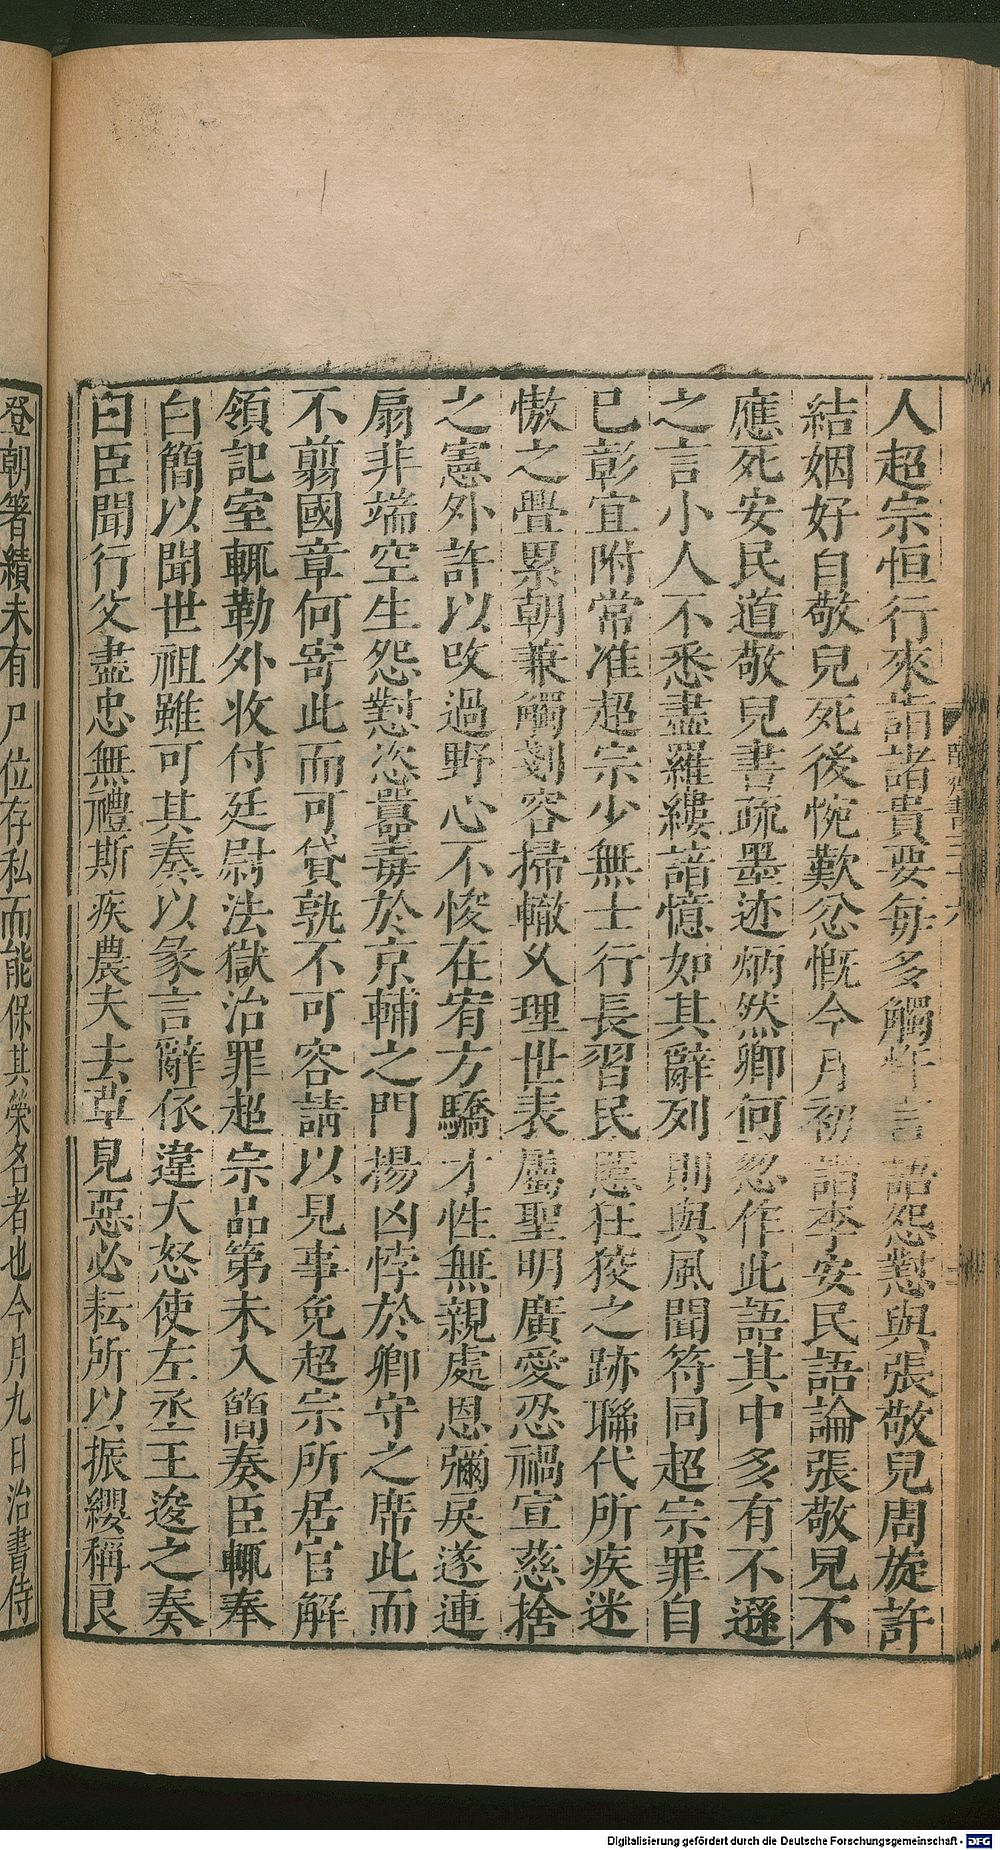 人超宗恒行來詣諸貴要每多觸忤言語怨懟與張敬兒周旋許
結姻好自敬兒死後惋歎忿慨今月初詣李安民語論張敬兒不
應死安民道敬兒書疏墨迹炳然卿何忽作此語其中多有不遜
之言小人不悉盡羅縷諳憶如其辭列則與風聞符同超宗罪自
已彰宜附常准超宗少無士行長習民慝狂狡之跡聯代所疾迷
傲之舋累朝兼觸剗容掃轍乆理世表屬聖明廣愛忍禍宣慈捨
之憲外許以攺過野心不悛在宥方驕才性無親處恩彌戾遂連
扇非端空生怨懟恣嚚毒於京輔之門揚凶悖於卿守之席此而
不翦國章何寄此而可貸孰不可容請以見事免超宗所居官解
領記室輒勒外收付廷尉法獄治罪超宗品第未入簡奏臣輒奉
白簡以聞世祖雖可其奏以彖言辭依違大怒使左丞王逡之奏
曰臣聞行父盡忠無禮斯疾農夫去草見惡必耘所以振纓稱良
登朝箸績未有尸位存私而能保其榮名者也今月九日治書侍
Digitalisierung gefördert durch die Deutsche Forschungsgemeinschaft - DFG